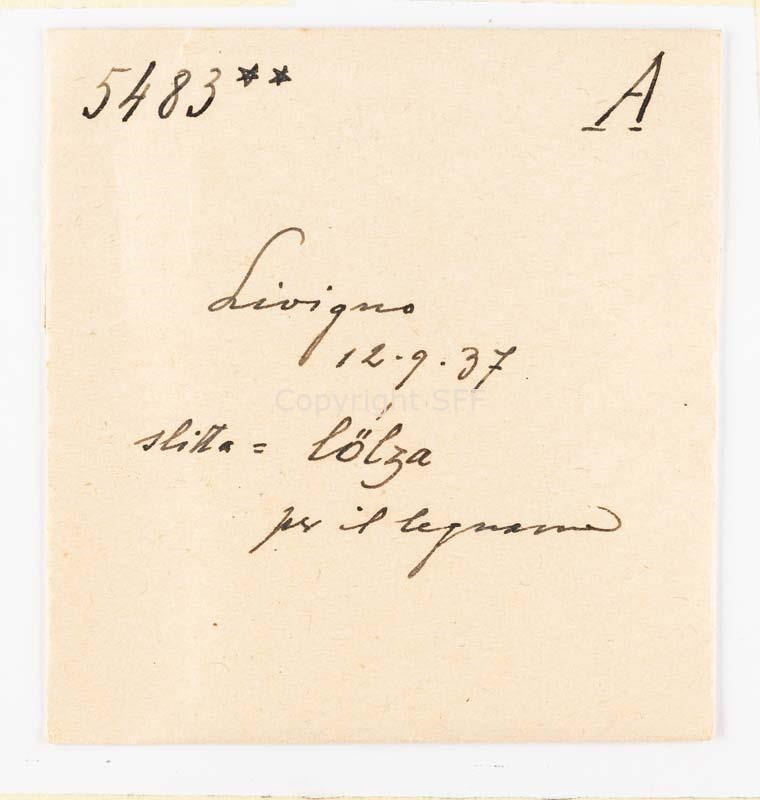 5483** A
Livigno
12.9.37
Copyright SFF
slitta = lölza
per il legname